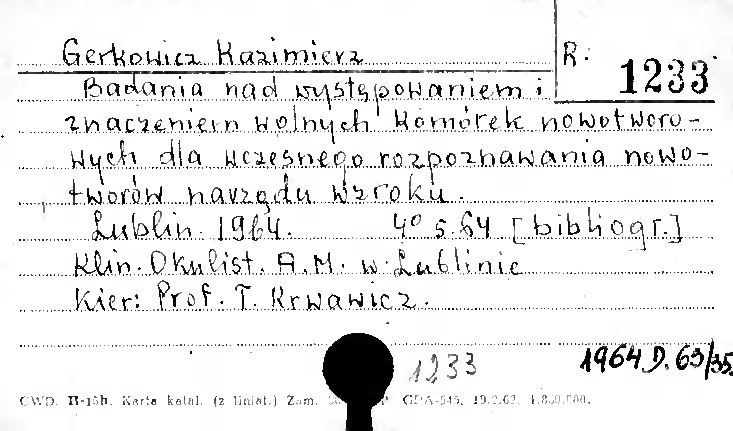 Gerkowicz Kazimierz
R: 1233
Badania nad występowaniem i
znaczeniem wolnych komórek nowotworo-
wych dla wczesnego rozpoznawania nowo-
tworów narządu wzroku.
Lublin. 1964. 4° s. 64 [bibliogr.]
Klin. Okulist. A. M. w Lublinie
Kier: Prof. T. Krwawicz.
1233
1964 D. 63/35.
CWD. II-15h. Karta katal. (z liniat.) Zam. GDA-545. 19.2.62. 1.800.000.